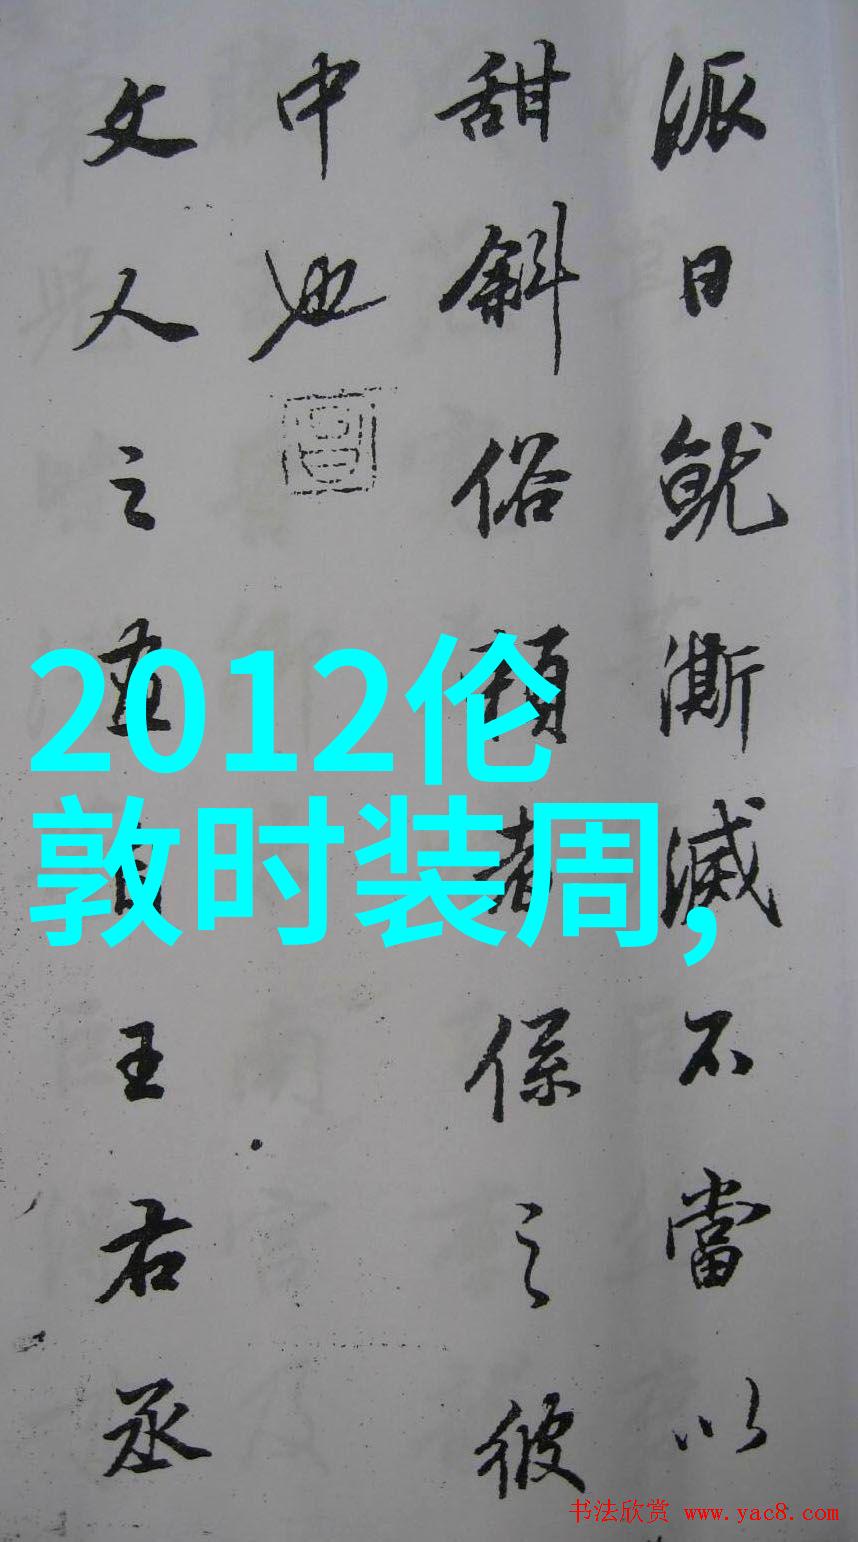 派日就澌滅不當以
甜斜俗賴者係之彼
中也
文人之畫自王右丞
2012伦
敦时装周,
书法欣赏 www.yac8.com